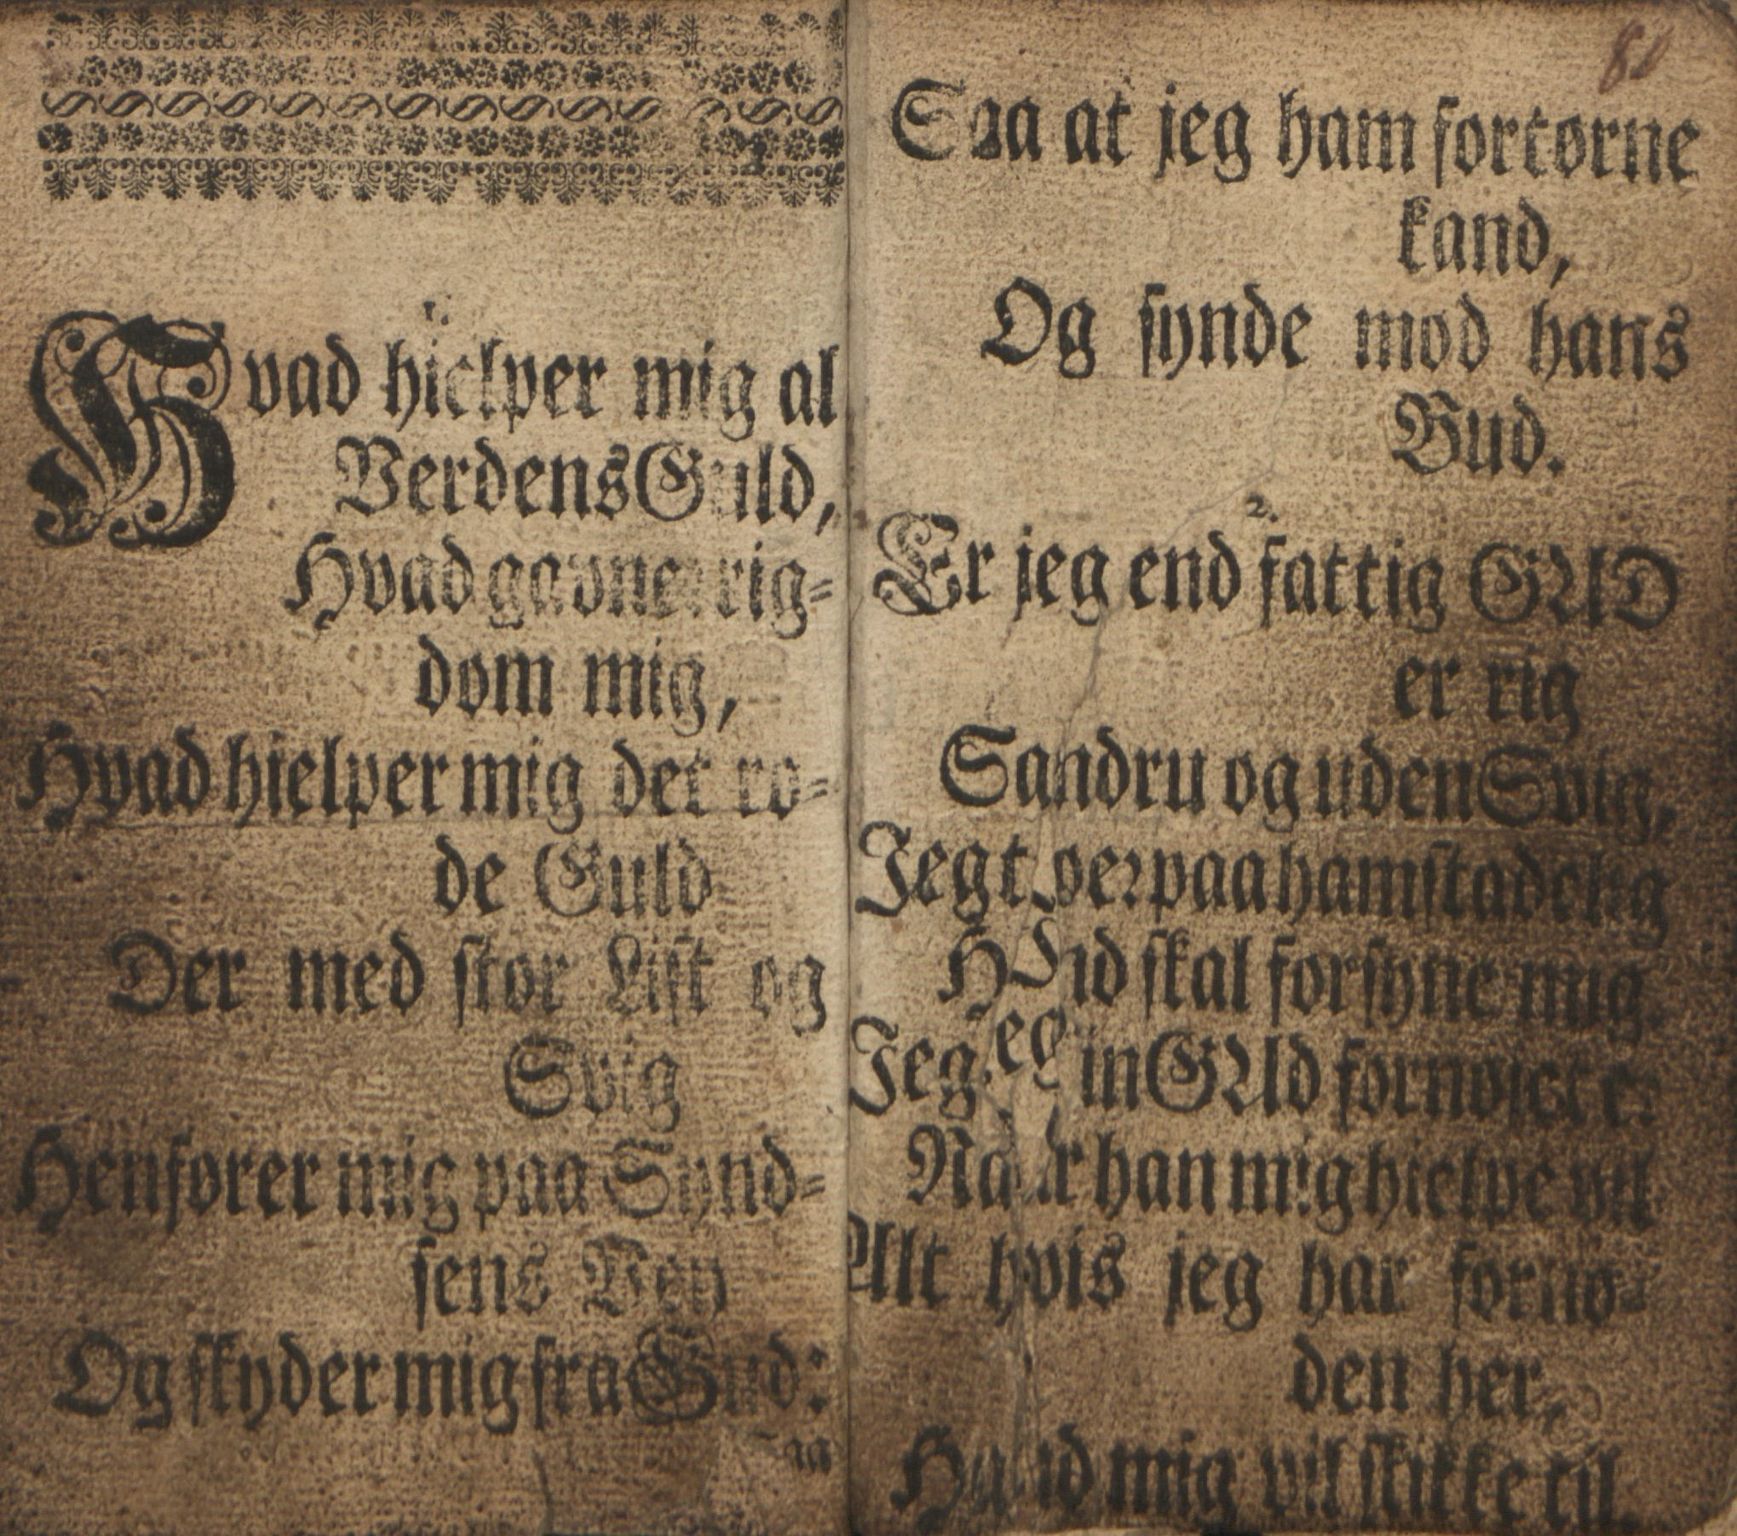 1.
Hvad hielper mig al
Verdens Guld,
Hvad gavner rig-
dom mig,
Hvad hielper mig det rø-
de Guld
Der med stor List og
Svig
Henfører mig paa Synd-
sens Vey
Og skyder mig fra Gud:
Saa
82
Saa at jeg ham fortørne
kand,
Og synde mod hans
Bud.
2.
Er jeg end fattig GUD
er rig
Sandru og uden Svig,
Jeg troer paa ham stadelig
Hand skal forsyne mig.
Jeg i min GUd fornøiet er
Naar han mig hielpe vil
Alt hvis jeg har fornø-
den her,
Hand mig vil skikke til